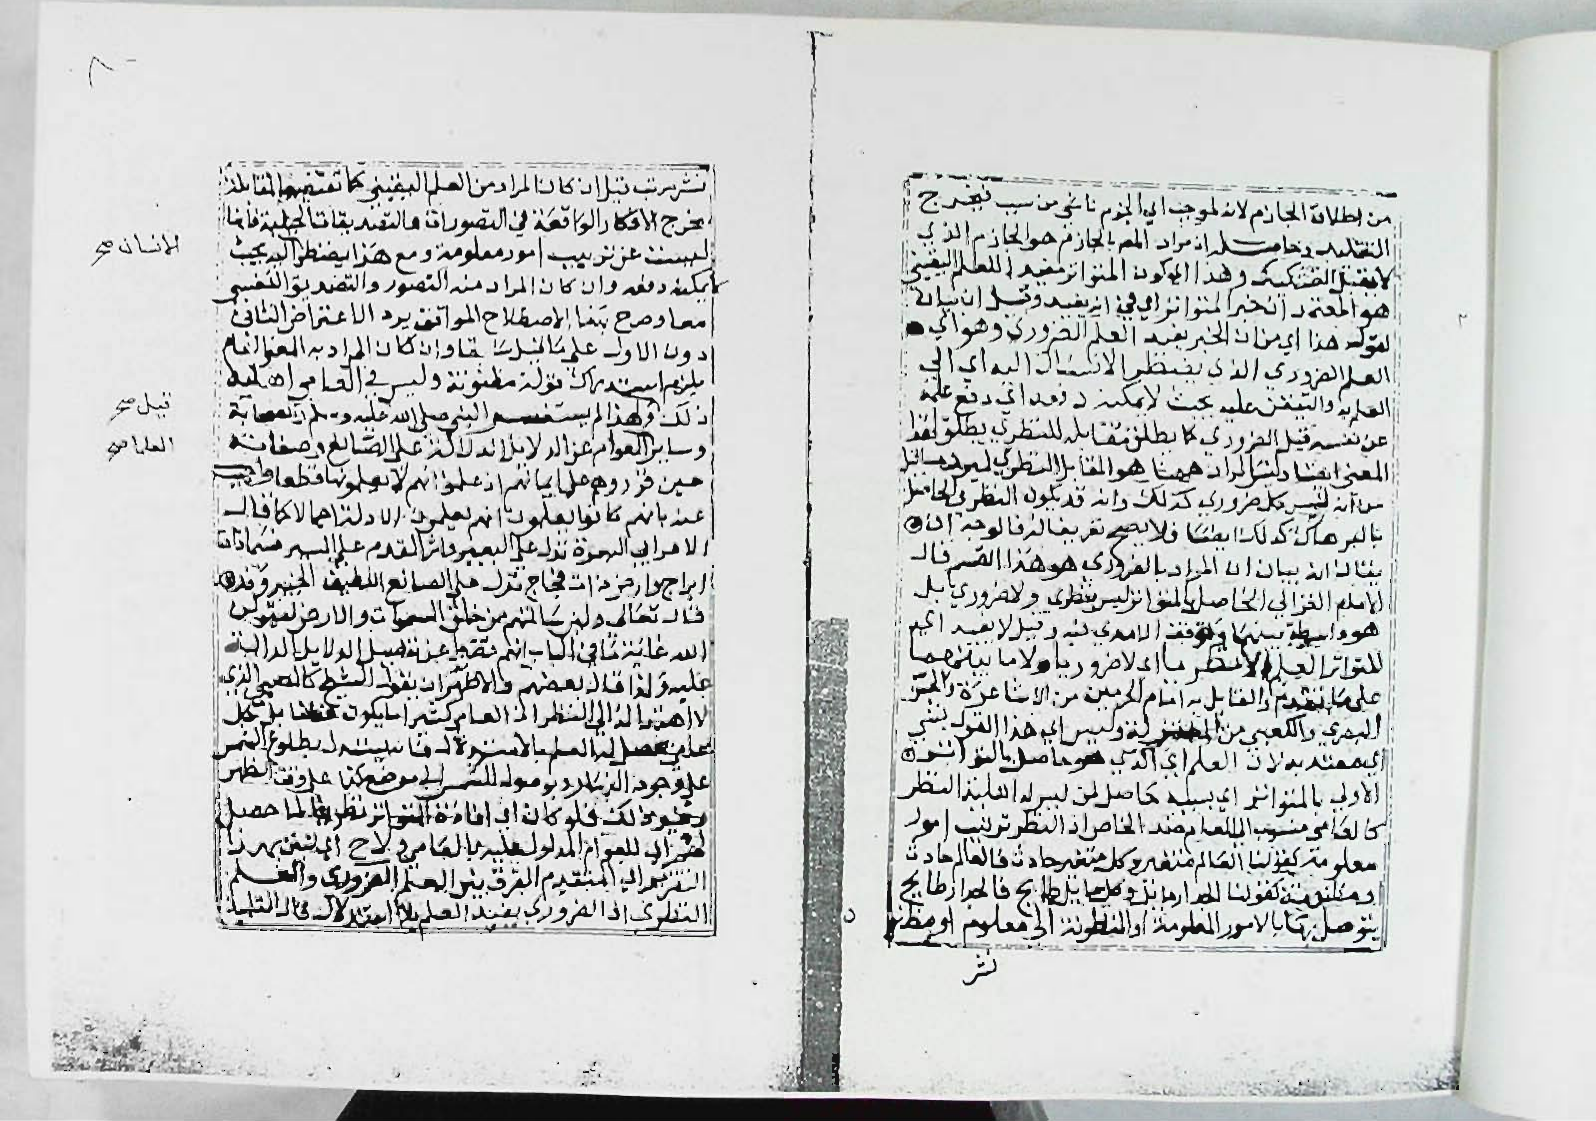 من اطلاق الجازم لانه لموجب اي الجزم ناشي من سبب فيخرج
التقليد وحاصله ان مراد المص بالجازم هو الجازم الذي
لا يقبل التشكيك وهذا اي كون المتواتر مفيدا للعلم اليقيني
هو المعتمد الخبر المتواتر اي في انه يفيد وقيل ان بيانه
لقوله هذا اي من ان الخبر يفيد العلم الضروري وهو اي
العلم الضروري الذي يضطر الانسان اليه اي الى
العلم به والتيقن عليه بحيث لا يمكنه دفعه اي دفع علمه
عن نفسه قيل الضروري كما يطلق مقابله للنظري يطلق لهذا
المعنى ايضا وليس المراد ههنا هو المقابل النظري
من انه ليس كل ضروري كذلك وانه قد يكون النظري الحاصل
بالبرهان كذلك ايضا فلا يصح تعريفا له فالوجه ان
يقال انه بيان ان المراد بالضروري هو هذا القسم قال
الامام الغزالي الحاصل بالمتواتر ليس بنظري ولا ضروري بل
هو واسطة بينهما وتوقف الامدي فيه وقيل لا يفيد اي
المتواتر العلم الا نظريا اي لا ضروريا ولا ما بينهما
على ما تقدم والقايل به امام الحرمين من الاشاعرة وابو الحسين
البصري والكعبي من المعتزلة وليس اي هذا القول بشي
اي معتد به لان العلم اي الذي هو حاصل بالتواتر
الاولى بالمتواتر اي بسببه حاصل لمن ليس له اهلية النظر
كالعامي منسوب الى العامة ضد الخاص اذ النظر ترتيب امور
معلومة كقولنا العالم متغير وكل متغير حادث فالعالم حادث
او مظنونة كقولنا
يتوصل بها بالامور المعلومة او المظنونة الى معلوم او مظنون
نشر
نشر مرتب قيل ان كان المراد من العلم اليقيني كما تقتضيه المقابلة
يخرج الافكار الواقعة في التصورات والتصديقات الجهلية فانها
ليست عن ترتيب امور معلومة ومع هذا يضطر اليه بحيث
لا يمكنه دفعه وان كان المراد منه التصور والتصديق النفسي
معا وصرح بهذا الاصطلاح المواقف يرد الاعتراض الثاني
دون الاول على وان كان المراد به المعنى العام
يلزم استدراك قوله مظنونة وليس في العامي اهلية
ذلك ولهذا لم يستفسر النبي صلى الله عليه وسلم والصحابة
وساير العوام عن الدلايل الدالة على الصانع وصفاته
حين قرروهم على ايمانهم اذ علموا انهم لا يعلمونها قطعا واجيب
عنه بانهم كانوا يعلمون انهم يعلمون الادلة اجمالا كما قال
الاعرابي البعرة تدل على البعير واثر القدم على المسير فسماء ذات
ابراج وارض ذات فجاج تدل على الصانع اللطيف الخبير وقد
قال تعالى ولين سالتهم من خلق السموات والارض ليقولن
الله غاية ما في الباب انهم عن تفصيل الدلايل الدالة
عليه ولذا قال بعضهم والاظهر ان يقول الشيخ كالصبي الذي
لا اهتداء له الى النظر اذ العامي كثيرا ما يكون بل كل
عامي يحصل له العلم بالاستدلال طلوع الشمس
على وجود النهار وبوصول الشمس الى موضع كذا على وقت الظهر
ونحو ذلك فلو كان اي افادة المتواتر نظريا لما حصل
اي للعوام المدلول عليه بالعامي ولاح اي ظهر بهذا
التقرير اي المتقدم الفرق بين العلم الضروري والعلم
النظري اذ الضروري يفيد العلم بلا استدلال قال التلميذ
الانسان صح
قيل صح
العلما صح